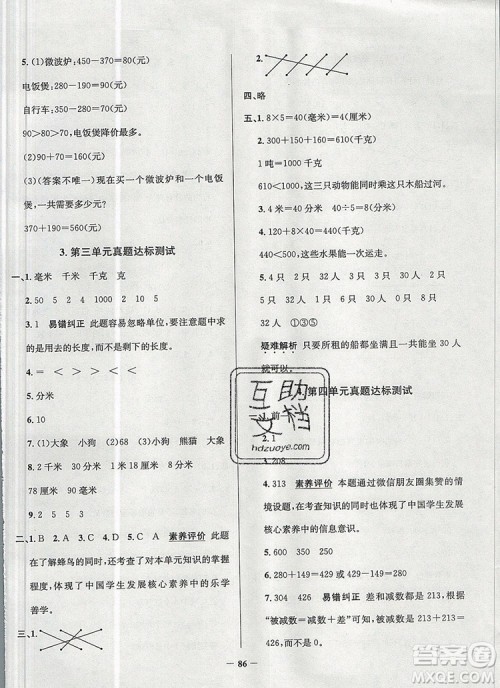 5. (1)微波炉:450-370=80(元)
电饭煲:280-190=90(元)
自行车:350-280=70(元)
90>80>70,电饭煲降价最多。
(2)90+70=160(元)
(3)(答案不唯一)现在买一个微波炉和一个电饭
煲一共需要多少元?
370+190=560(元)
3. 第三单元真题达标测试
一、1. 毫米 千米 千克 克
2. 50 5 2 4000 1000 2
3. 1 易错纠正 此题容易忽略单位,要注意题中求
的是用去的长度,不是剩下的长度。
4. 20
5. 10
6. (1)大象 小狗 (2)68 (3)小狗 熊猫 大象
7. 分米 毫米 厘米 千米
8. 180 千米 30 千克 1 分米 4 分米
78 厘米 90 厘米
9. 0 2 5
二、1. B 2. D 3. C 4. A 5. C 素养评价 此题
在了解蜂鸟的同时,还考查了对本单元知识的掌握
程度,体现了中国学生发展核心素养中的乐学
善学。
三、1.
2.
四、略
五、1. 8×5=40(毫米)=4(厘米)
2. 300+150+160=610(千克)
1吨=1000千克
610<1000,这三只动物能同时乘这只木船过河。
3. 40÷4=10(分米) 40÷5=8(厘米)
440<500,这些水果能一次运走。
5. 4只 2只 12只 0只 8只 2只
32人 ①③⑤
疑难解析 只要所租的船都坐满且一共能坐30人
就可以。
4. 第四单元真题达标测试
2. 1
3. 208
4. 313 素养评价 本题通过微信朋友圈集赞的情
境设题,在考查知识的同时,体现了中国学生发展
核心素养中的信息意识。
5. 600 350
6. 280 429-149=280
7. 304 426 易错纠正 差和减数都是213,根据
“被减数=减数+差”可知被减数是213+213=
426,而不是0。
互助
文档
hdzuoye.com
86
答案圈
MXQE.COM